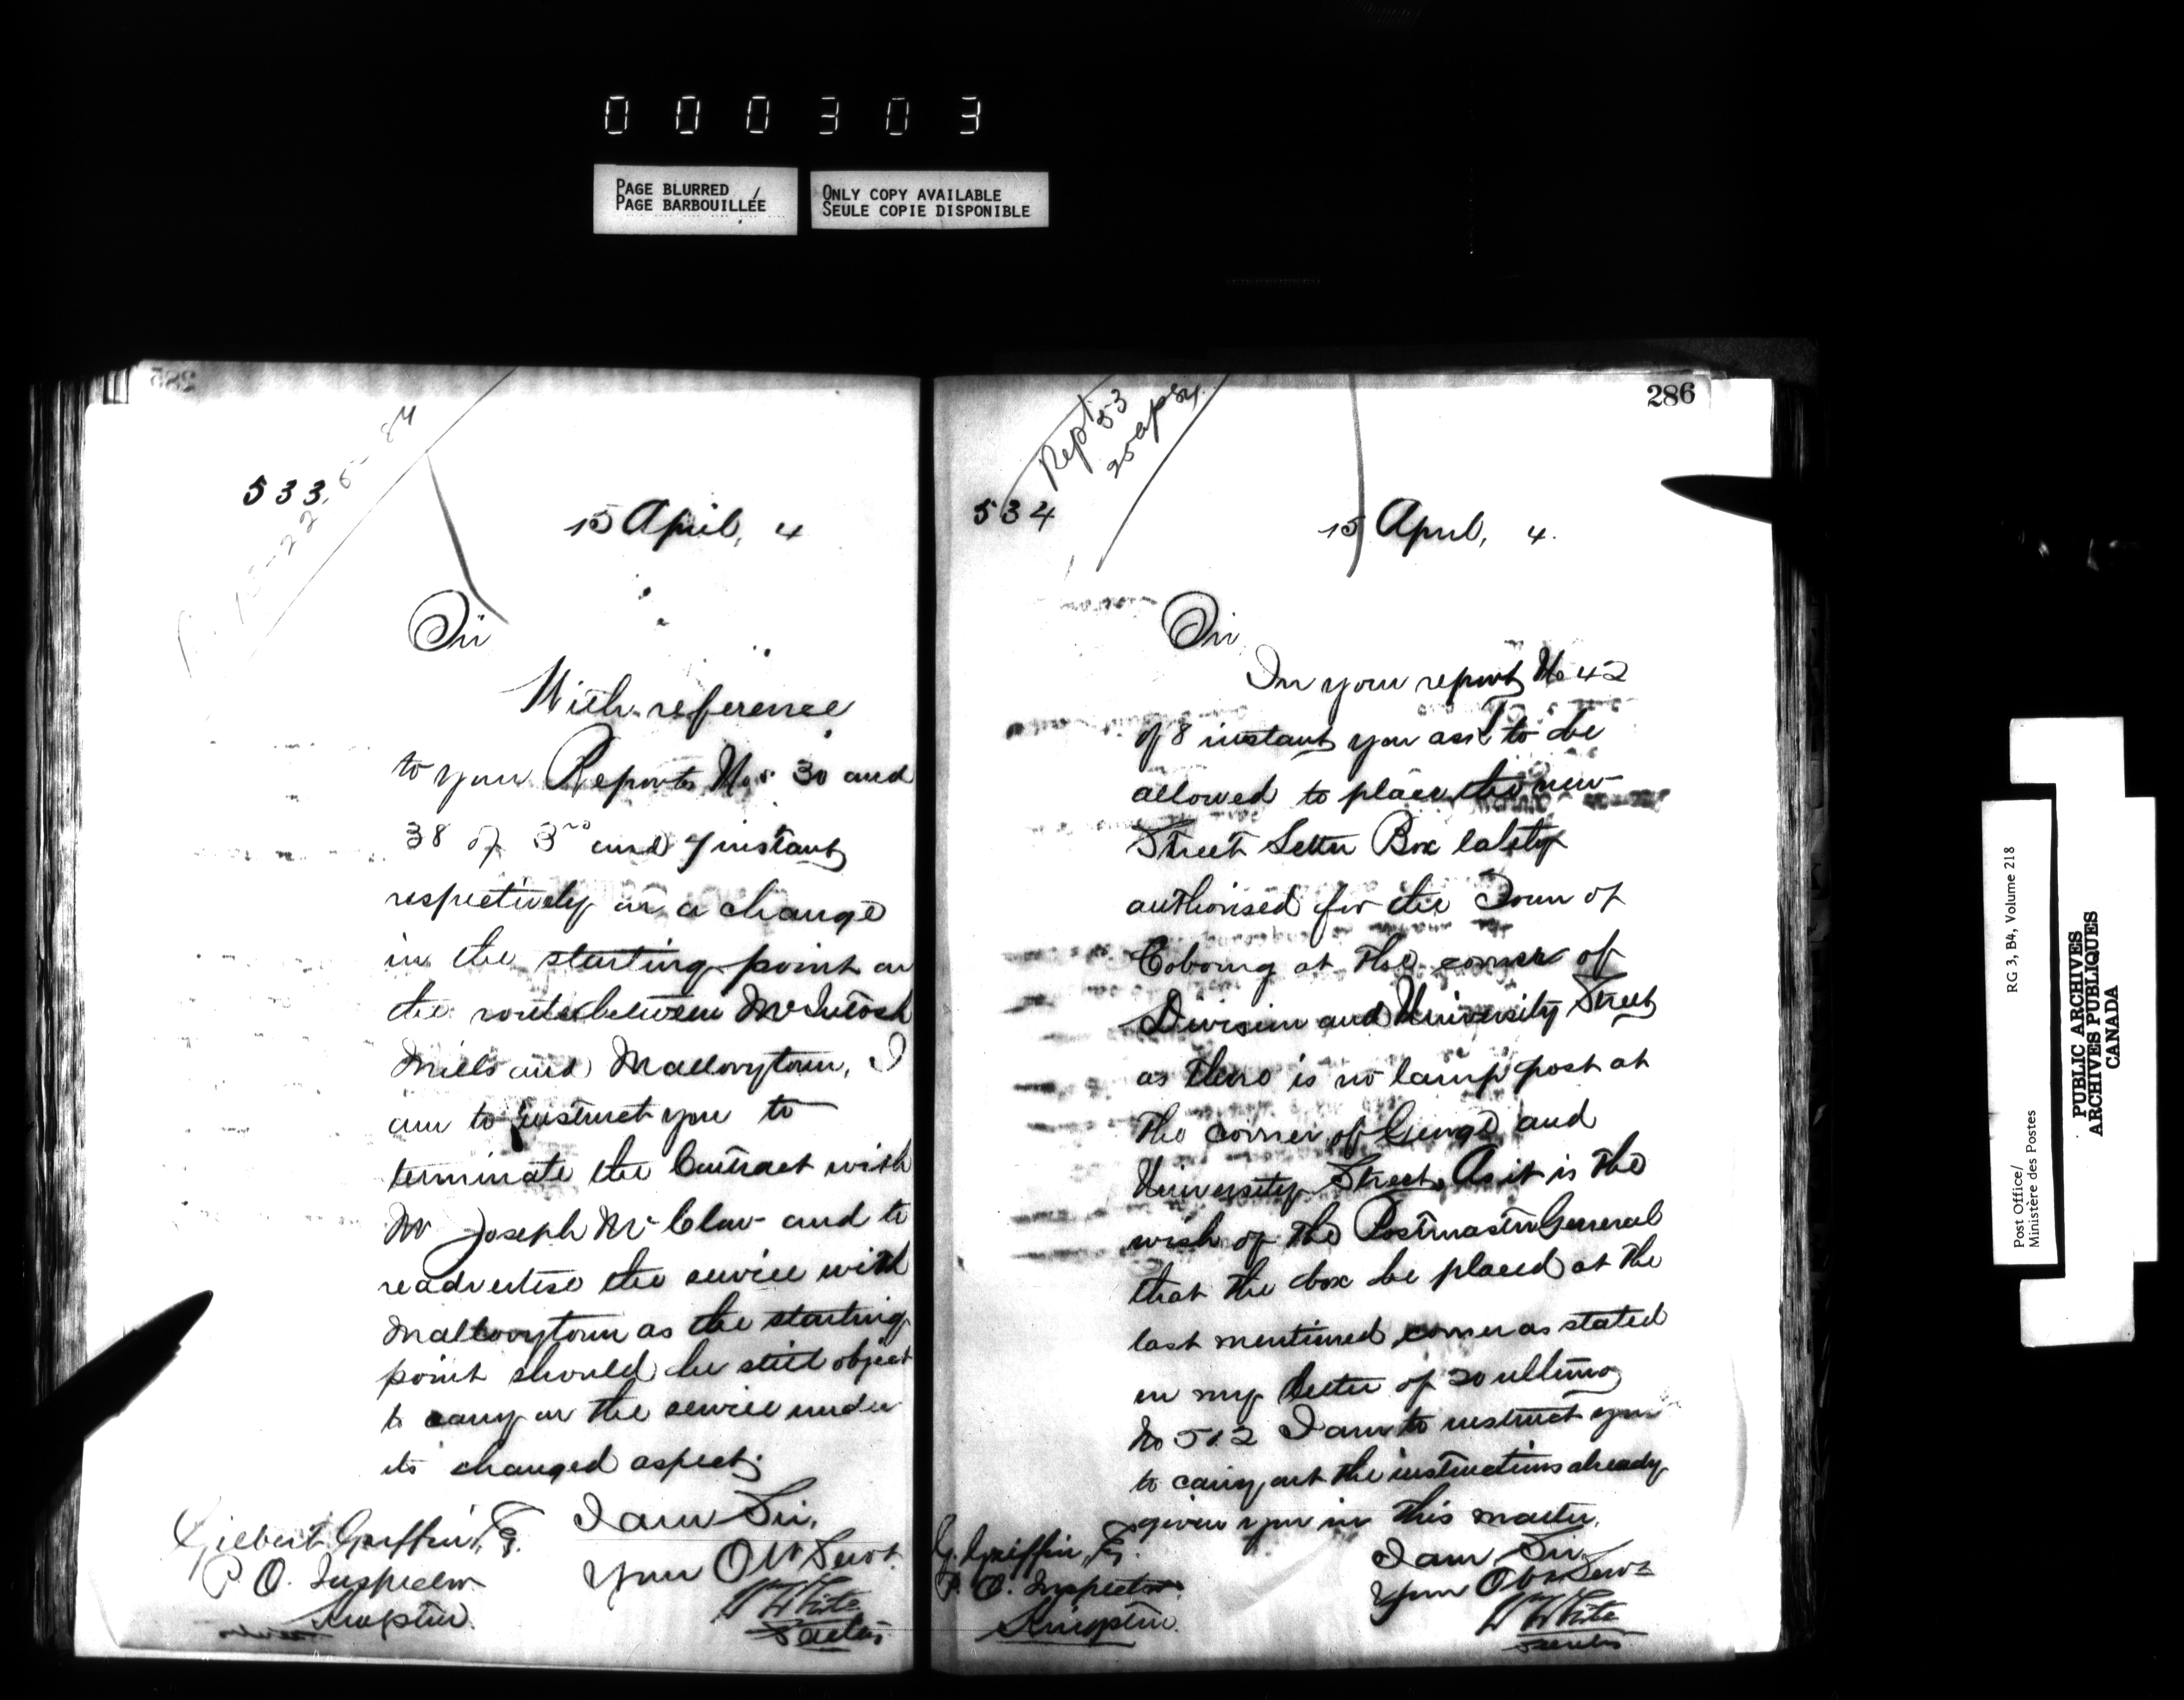 000303
PAGE BLURRED
PAGE BARBOUILLÉE
ONLY COPY AVAILABLE
SEULE COPIE DISPONIBLE
285
533.
15 April, 4
Sir
With reference
to your Reports Nos. 30 and
38 of 3rd and 7 instant
respectively on a change
in the starting point on
the route between McIntosh
Mills and Mallorytown, I
am to instruct you to
terminate the Contract with
Mr Joseph McClow and to
readvertise the service with
Mallorytown as the starting
point should he still object
to carry on the service under
its changed aspect.
I am Sir,
Your Ob Servt
W White
Secretary
Gilbert Griffin, Esq.
P. O. Inspector
Kingston.
286
Rept 53
25 Ap 84
534
15 April, 4.
Sir
In your report No 42
of 8 instant you ask to be
allowed to place the new
Street Letter Box lately
authorised for the Town of
Cobourg at the corner of
Division and University Street
as there is no lamp post at
the corner of George and
University Street. As it is the
wish of the Postmaster General
that the box be placed at the
last mentioned corner as stated
in my letter of 20 ultimo
No 512 I am to instruct you
to carry out the instructions already
given you in this matter.
I am Sir
Your Ob Servt
W White
Secretary
G. Griffin, Esq.
P. O. Inspector
Kingston.
Post Office/
Ministère des Postes
RG 3, B4, Volume 218
PUBLIC ARCHIVES
ARCHIVES PUBLIQUES
CANADA